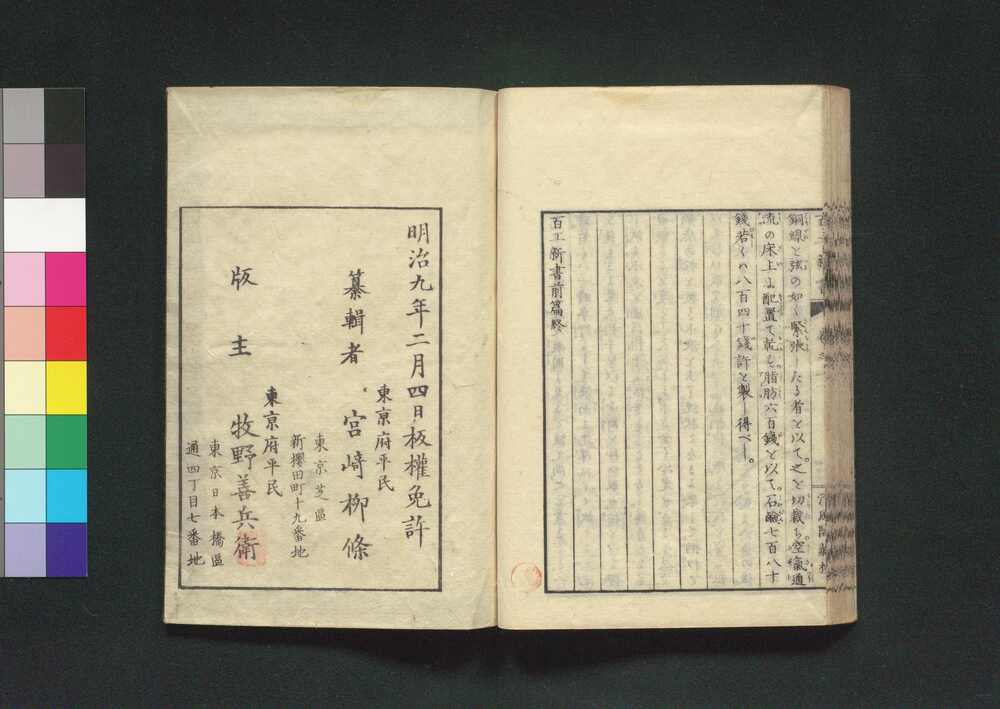 銅線を弦の如く緊張したる者を以て之を切截ち空氣通
流の床上に配置て乾し脂肪六百錢を以て石鹼七百八十
錢若くハ八百四十錢許を製し得べし。
百工新書前篇終
明治九年二月四日板權免許
東京府平民
纂輯者 宮崎柳條
東京芝區
新櫻田町十九番地
東京府平民
版主 牧野善兵衛
東京日本橋區
通四丁目七番地